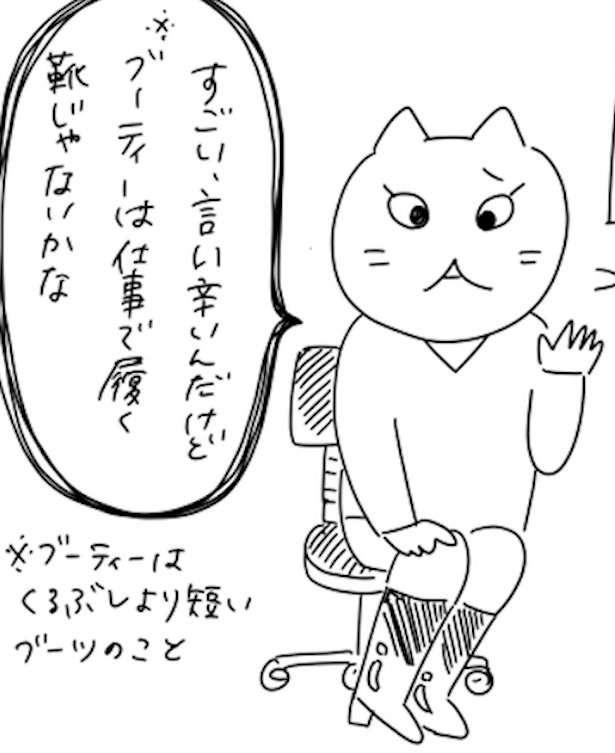 すごい、言い辛いんだけど
※ブーティーは仕事で履く
靴じゃないかな
※ブーティーは
くるぶしより短い
ブーツのこと